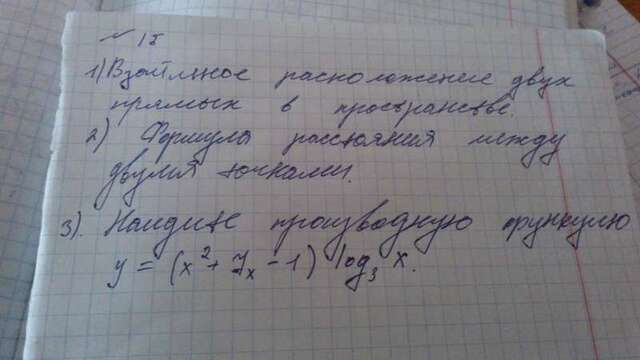 № 15
1) Взаимное расположение двух
прямых в пространстве.
2) Формула расстояния между
двумя точками.
3). Найдите производную функцию
y = (x² + 7x - 1) log₃ x.